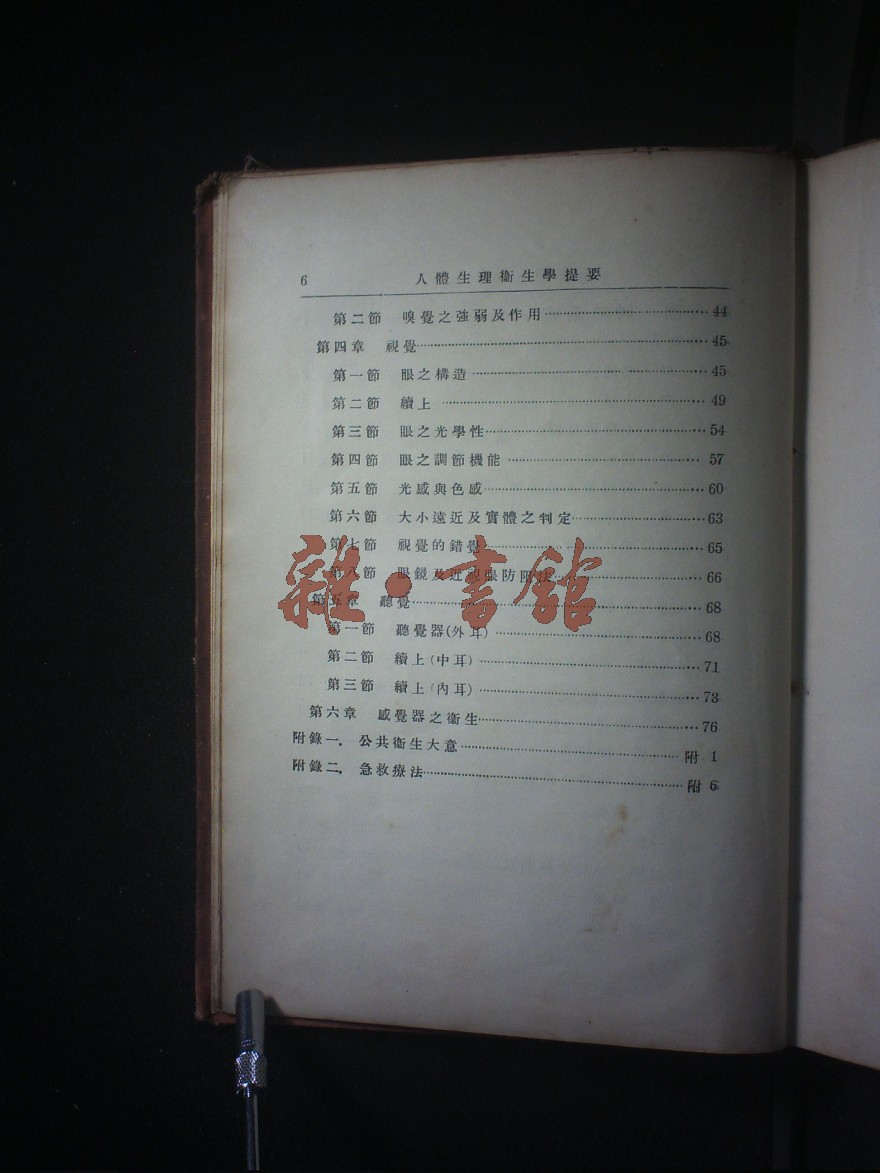 6 人體生理衞生學提要
第二節 嗅覺之強弱及作用 44
第四章 視覺 45
第一節 眼之構造 45
第二節 續上 49
第三節 眼之光學性 54
第四節 眼之調節機能 57
第五節 光感與色感 60
第六節 大小遠近及實體之判定 63
第七節 視覺的錯覺 65
第八節 眼鏡及近視眼防附法 66
第五章 聽覺 68
第一節 聽覺器(外耳) 68
第二節 續上(中耳) 71
第三節 續上(內耳) 73
第六章 感覺器之衞生 76
附錄一. 公共衞生大意 附 1
附錄二. 急救療法 附 6
雜·書館